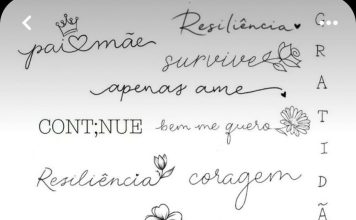 Resiliência
pai mãe
survive
apenas ame
CONT;NUE
bem me quero
Resiliência
coragem
G
R
A
T
I
D
Ã